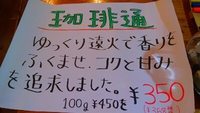 珈琲通
ゆっくり遠火で香りを
ふくませ、コクと甘み
を追求しました。¥350
100g ¥450を